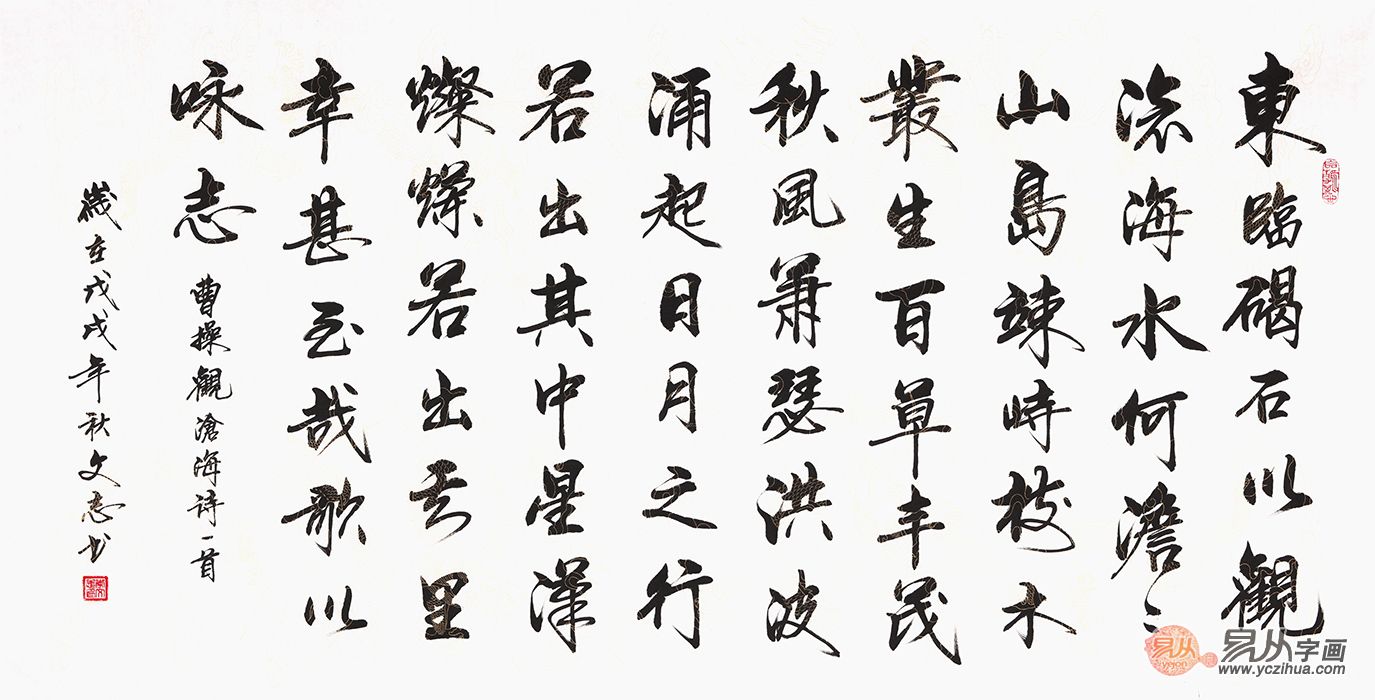 東臨碣石以觀
滄海水何澹々
山島竦峙樹木
叢生百草丰茂
秋風蕭瑟洪波
涌起日月之行
若出其中星漢
燦爛若出其里
幸甚至哉歌以
咏志
曹操觀滄海诗一首
歲在戊戌年秋文志书
易从
易从字画
www.yczihua.com